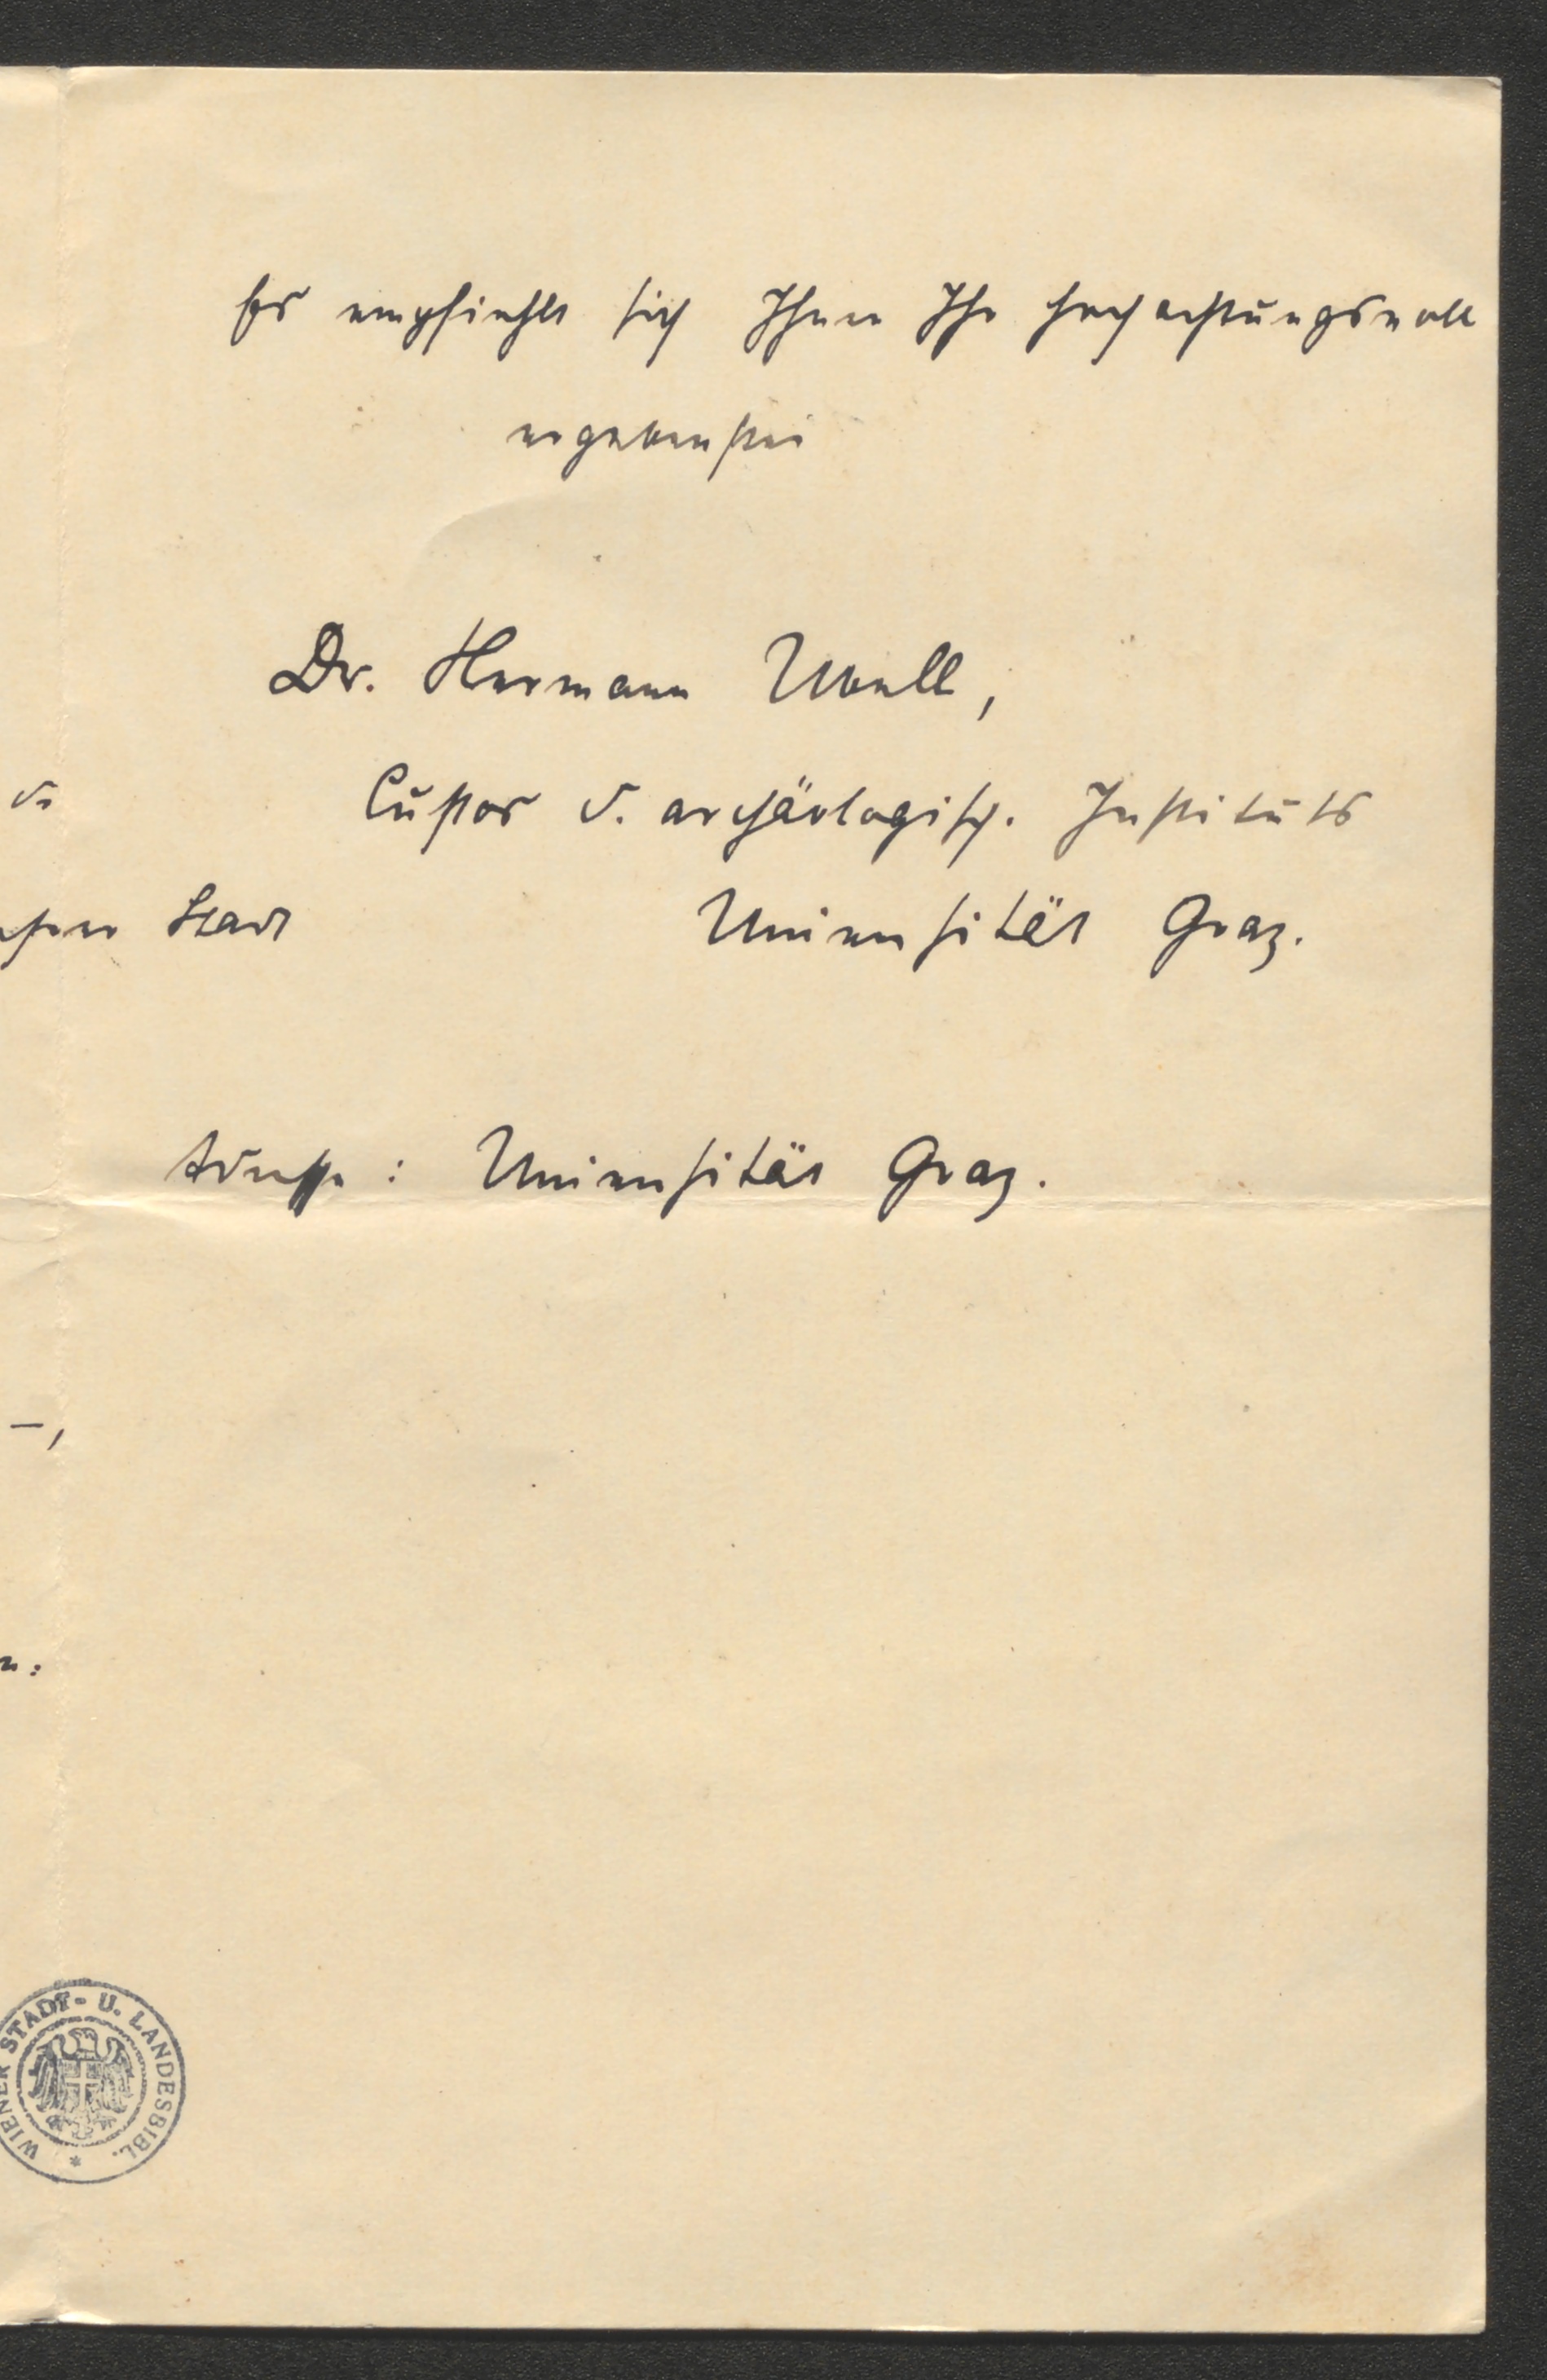 Es empfiehlt sich Ihnen Ihr hochachtungsvoll
ergebenster
Dr. Hermann Ubell,
Custos d. archäologisch. Instituts
Universität Graz.
Stadt
Adresse: Universität Graz.
WIENER STADT- U. LANDESBIBL.